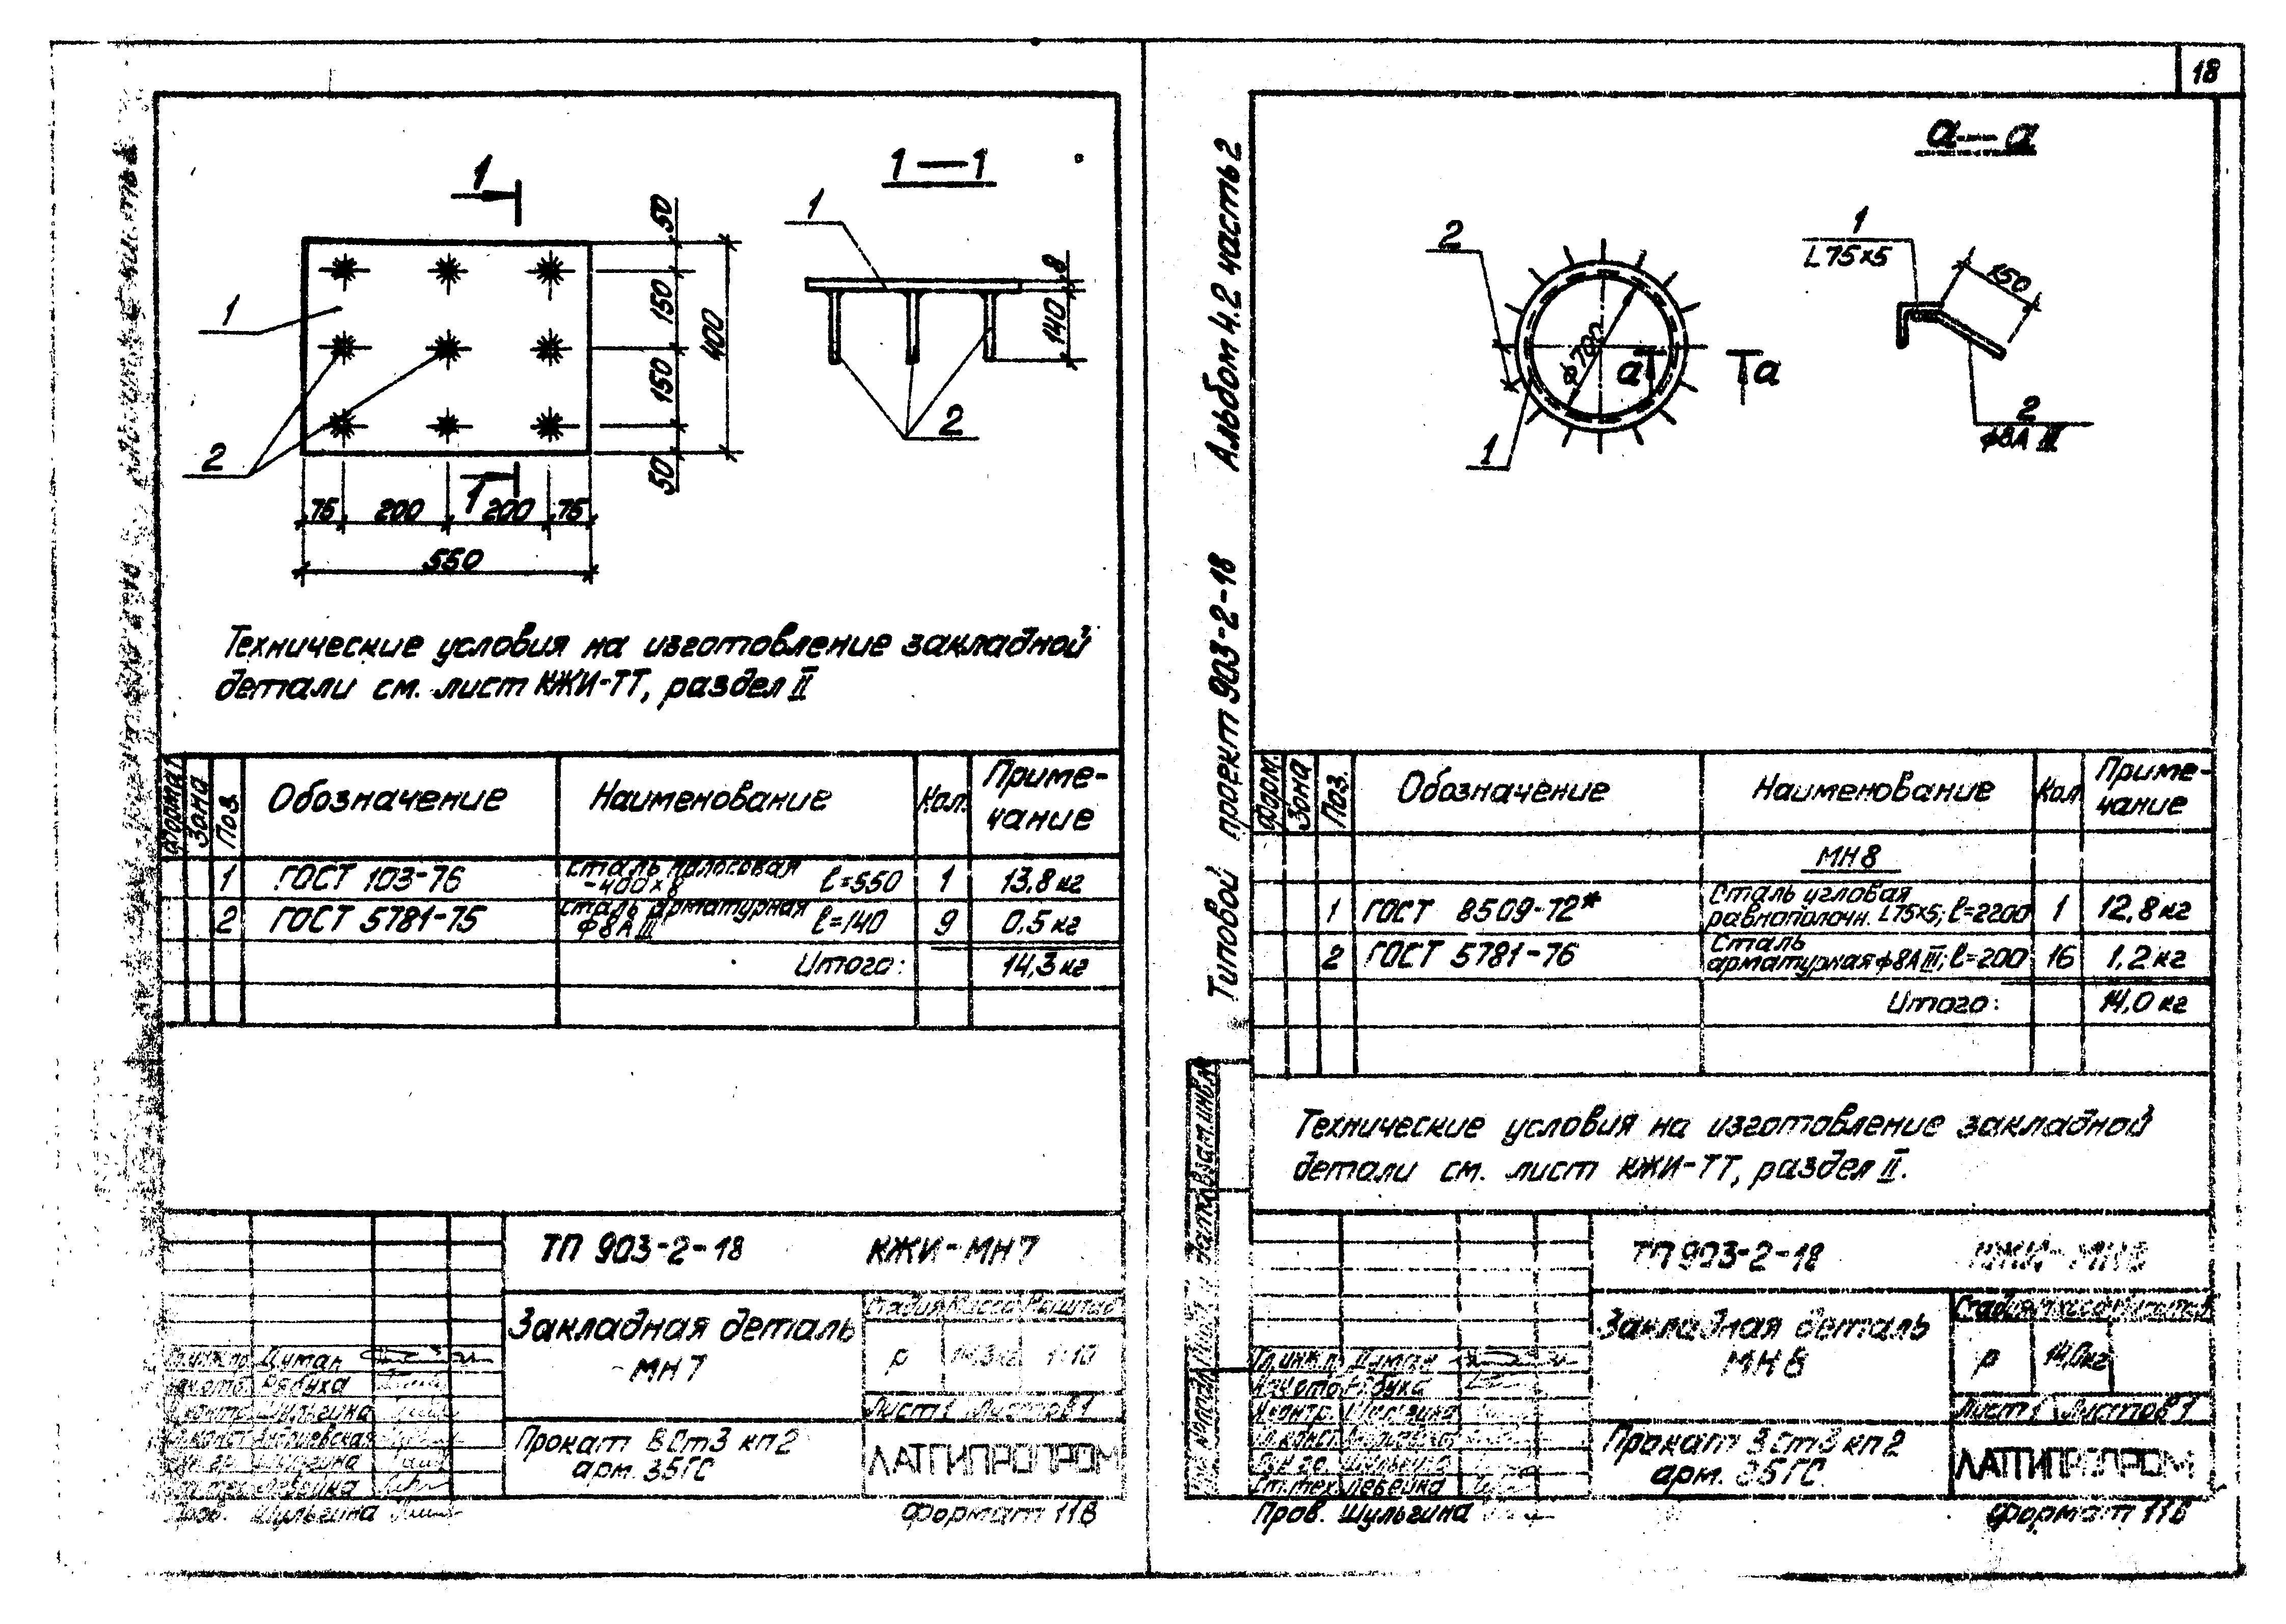 18
1
1—1
1
1
2
2
50
150
150
50
400
8
140
75
200
200
75
1
550
Технические условия на изготовление закладной
детали см. лист КЖИ-ТТ, раздел II
Формат
Зона
Поз.
Обозначение
Наименование
Кол.
Приме-
чание
1 ГОСТ 103-76 Сталь полосовая -400×8 ℓ=550 1 13,8 кг
2 ГОСТ 5781-75 Сталь арматурная ф8АIII ℓ=140 9 0,5 кг
Итого: 14,3 кг
ТП 903-2-18 КЖИ-МН7
Закладная деталь
МН7
Стадия Масса Масштаб
р 14,3кг 1:10
Лист 1 Листов 1
Прокат ВСт3 кп2
арм. 35ГС
ЛАТГИПРОПРОМ
Гл.инж.пр. Думан
Рябуха
Шульгина
Пров. Шульгина
Формат 11В
Типовой проект 903-2-18 Альбом 4.2 часть 2
а—а
2
1
ф702
а
а
1
L75×5
150
2
ф8А III
Форм.
Зона
Поз.
Обозначение
Наименование
Кол
Приме-
чание
МН8
1 ГОСТ 8509-72* Сталь угловая равнополочн. L75×5; ℓ=2200 1 12,8 кг
2 ГОСТ 5781-76 Сталь арматурная ф8АIII; ℓ=200 16 1,2 кг
Итого: 14,0 кг
Технические условия на изготовление закладной
детали см. лист КЖИ-ТТ, раздел II.
Взам.инв.№
ТП 903-2-18 КЖИ-МН8
Закладная деталь
МН8
Стадия Масса Масштаб
р 14,0кг
Лист 1 Листов 1
Гл.инж.п. Думан
Нач.отд. Рябуха
Н.контр. Шульгина
Ст.тех. Лебедка
Прокат ВСт3 кп2
арм. 35ГС
ЛАТГИПРОПРОМ
Пров. Шульгина
Формат 11В